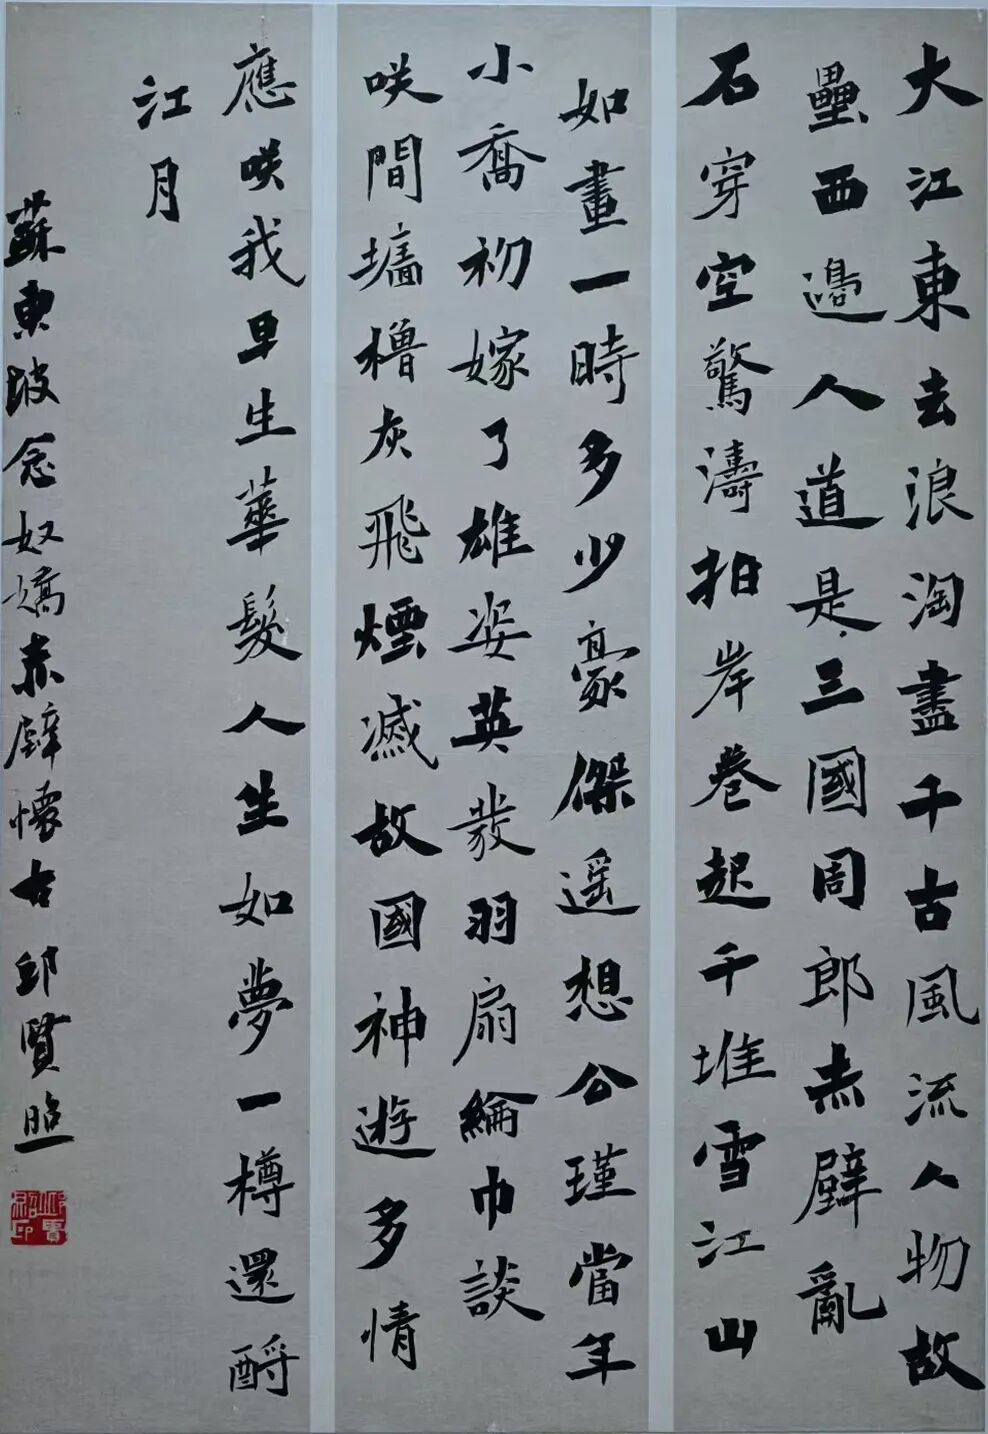 大江東去浪淘盡千古風流人物故
壘西邊人道是三國周郎赤壁亂
石穿空驚濤拍岸卷起千堆雪江山
如畫一時多少豪傑遥想公瑾當年
小喬初嫁了雄姿英發羽扇綸巾談
咲間墻櫓灰飛煙滅故國神遊多情
應咲我早生華髮人生如夢一樽還酹
江月
蘇東坡念奴嬌赤壁懷古 邱賢